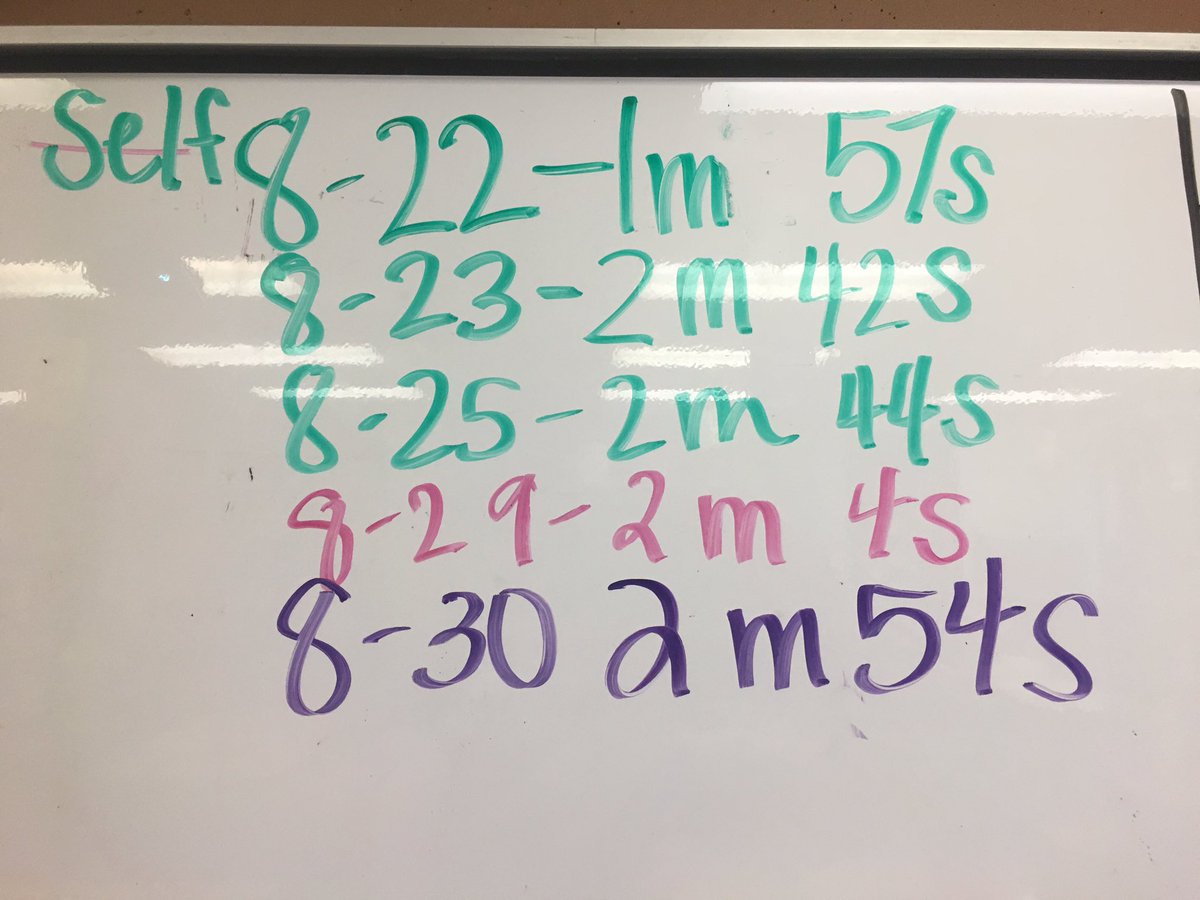 Self 8-22-1m 57s
8-23-2m 42s
8-25-2m 44s
8-29-2m 4s
8-30 2m 54s